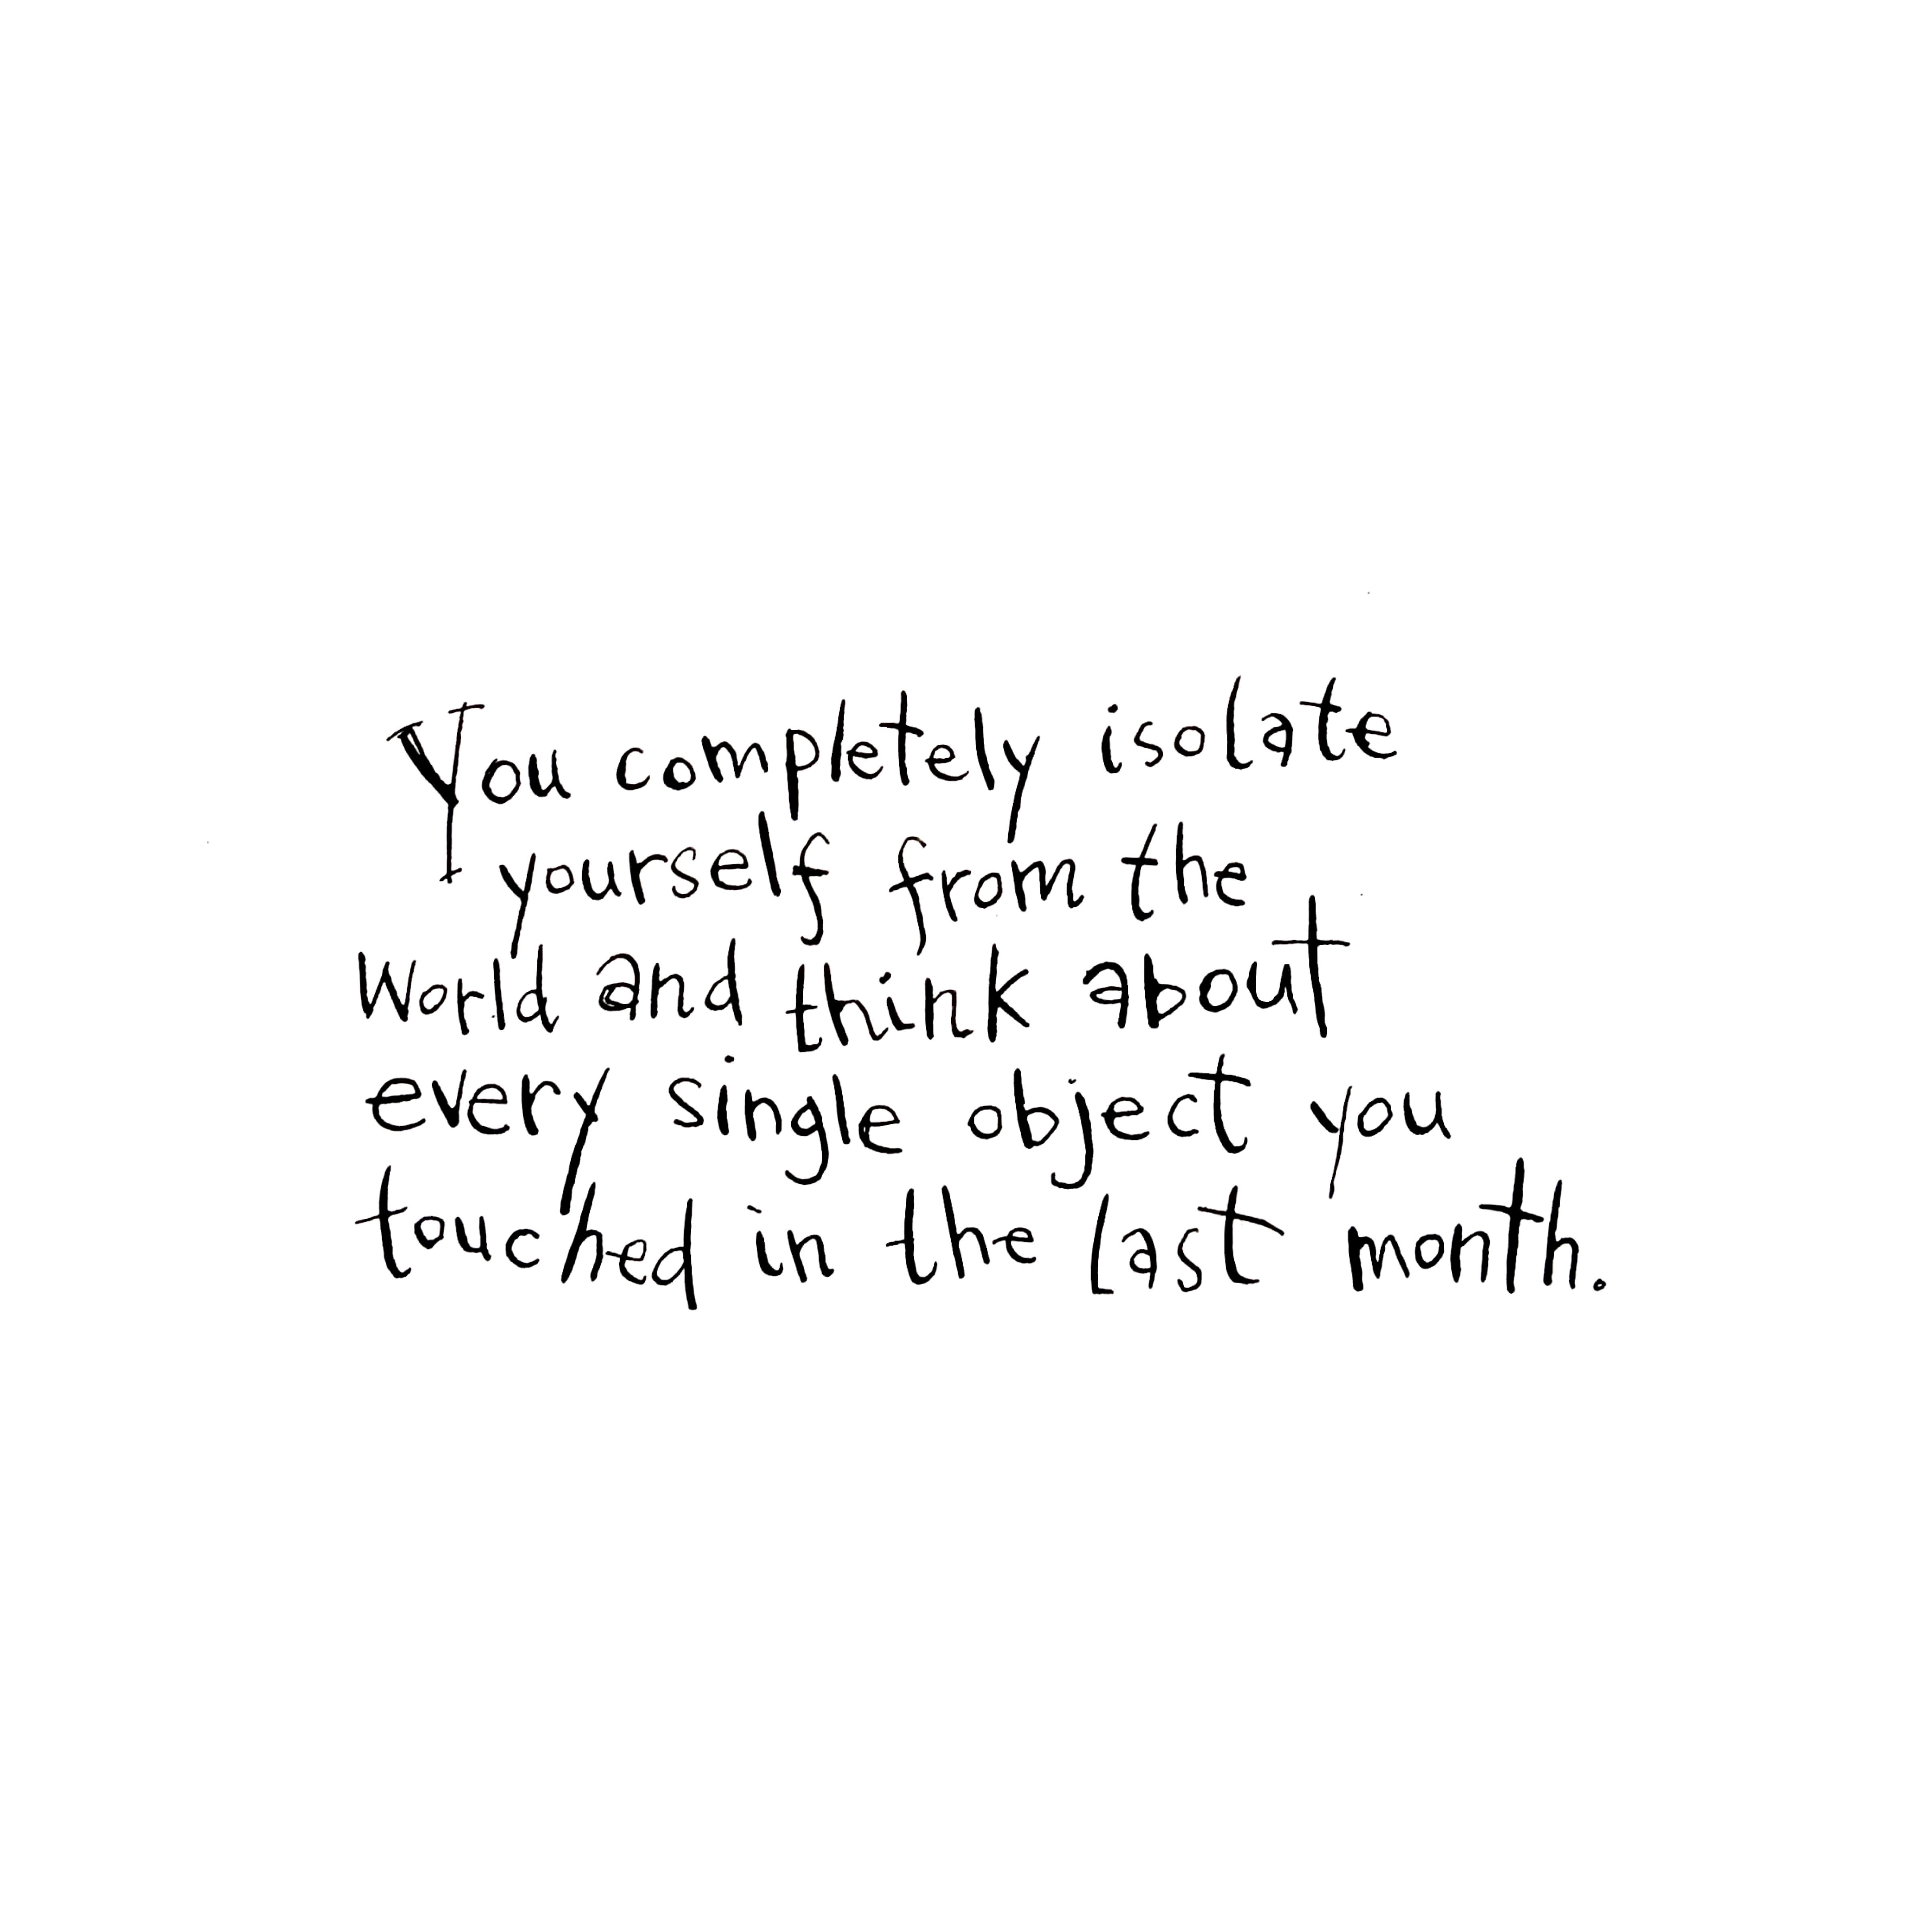 You completely isolate
yourself from the
World and think about
every single object you
touched in the last month.